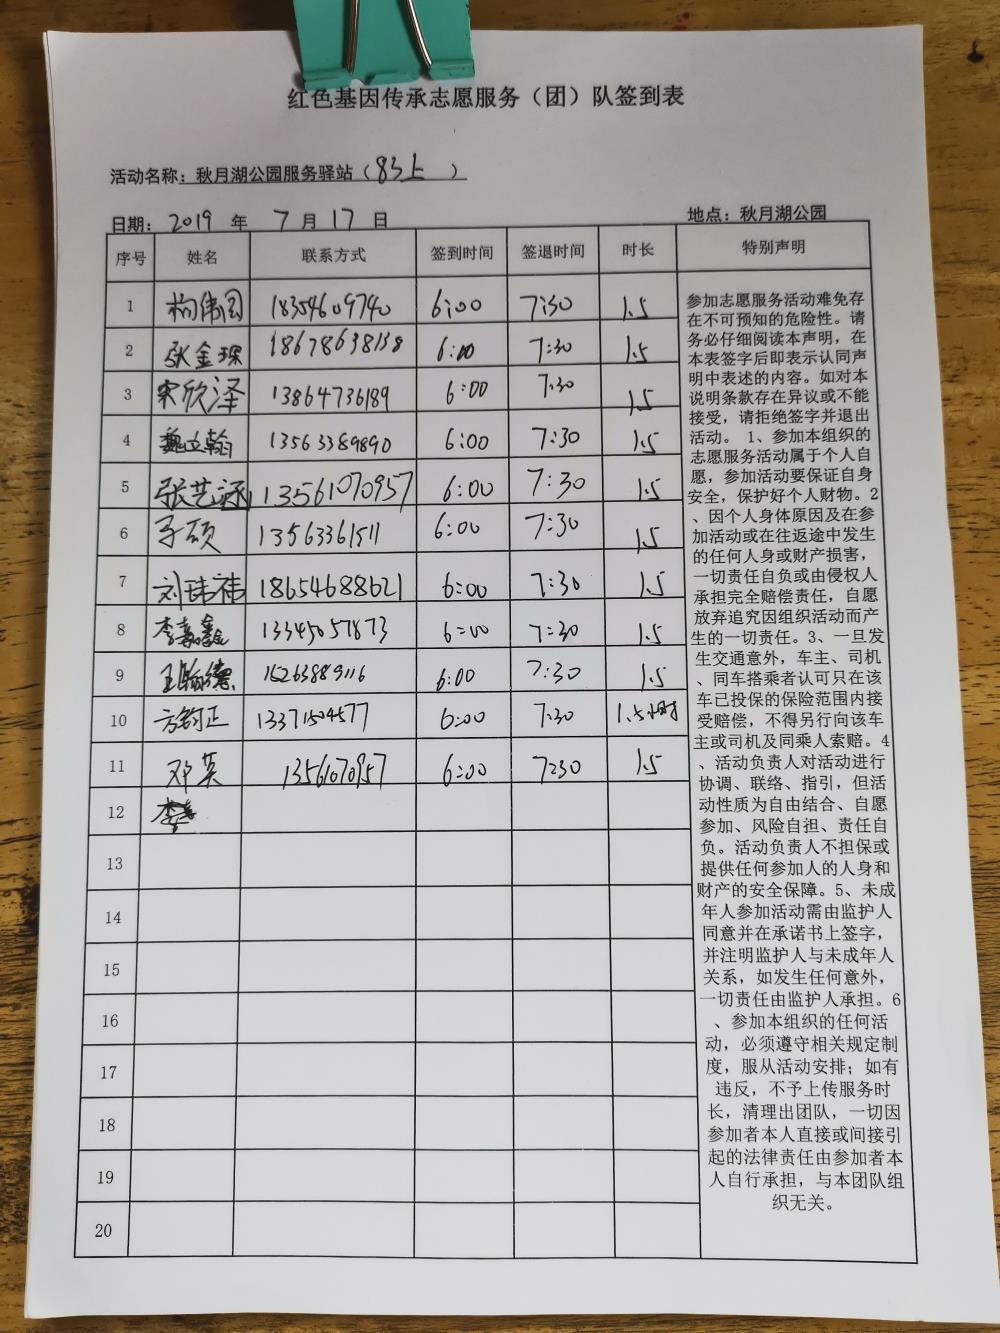 红色基因传承志愿服务（团）队签到表
活动名称：秋月湖公园服务驿站（83上 ）
日期：2019 年 7 月 17 日 地点：秋月湖公园
序号 姓名 联系方式 签到时间 签退时间 时长 特别声明
1 18354609740 6:00 7:30 1.5
2 张金琛 18678638138 6:00 7:30 1.5
3 宋欣泽 13864736189 6:00 7:30 1.5
4 魏立翰 13563389890 6:00 7:30 1.5
5 张艺涵 13561070957 6:00 7:30 1.5
6 子硕 13563361511 6:00 7:30 1.5
7 刘玮祎 18654688621 6:00 7:30 1.5
8 李嘉鑫 13345057873 6:00 7:30 1.5
9 王翰德 15263889116 6:00 7:30 1.5
10 方钧正 13371504577 6:00 7:30 1.5小时
11 邓英 13561070957 6:00 7:30 1.5
12
13
14
15
16
17
18
19
20
参加志愿服务活动难免存
在不可预知的危险性。请
务必仔细阅读本声明，在
本表签字后即表示认同声
明中表述的内容。如对本
说明条款存在异议或不能
接受，请拒绝签字并退出
活动。 1、参加本组织的
志愿服务活动属于个人自
愿，参加活动要保证自身
安全，保护好个人财物。2
、因个人身体原因及在参
加活动或在往返途中发生
的任何人身或财产损害，
一切责任自负或由侵权人
承担完全赔偿责任，自愿
放弃追究因组织活动而产
生的一切责任。3、一旦发
生交通意外，车主、司机
、同车搭乘者认可只在该
车已投保的保险范围内接
受赔偿，不得另行向该车
主或司机及同乘人索赔。4
、活动负责人对活动进行
协调、联络、指引，但活
动性质为自由结合、自愿
参加、风险自担、责任自
负。活动负责人不担保或
提供任何参加人的人身和
财产的安全保障。5、未成
年人参加活动需由监护人
同意并在承诺书上签字，
并注明监护人与未成年人
关系，如发生任何意外，
一切责任由监护人承担。6
、参加本组织的任何活
动，必须遵守相关规定制
度，服从活动安排；如有
违反，不予上传服务时
长，清理出团队，一切因
参加者本人直接或间接引
起的法律责任由参加者本
人自行承担，与本团队组
织无关。